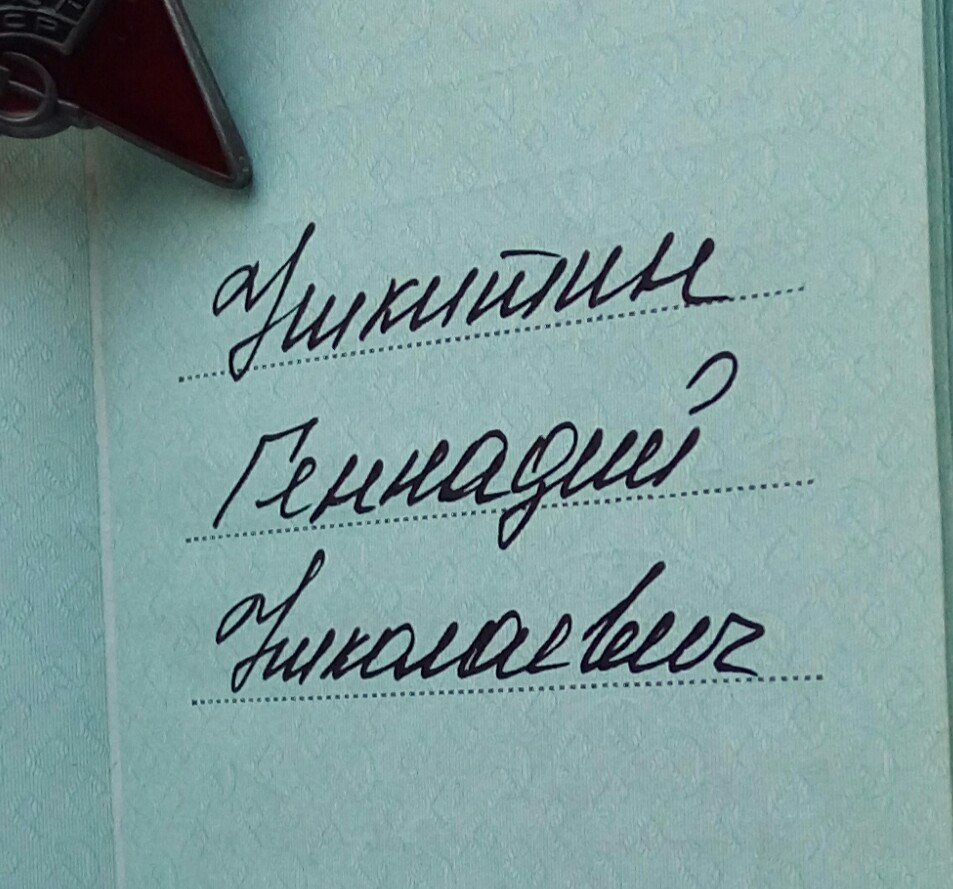 СР
Никитин
Геннадий
Николаевич